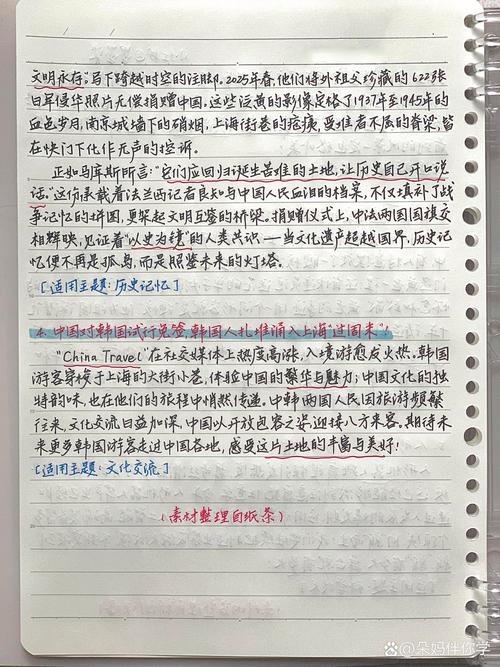 文明永存"写下跨越时空的注脚。2025年春,他们将外祖父珍藏的622张
日军侵华照片无偿捐赠中国。这些泛黄的影像定格了1937年至1945年的
血色岁月,南京城墙下的硝烟,上海街巷的疮痍,受难者不屈的脊梁,皆
在快门下化作无声的控诉。
正如马库斯所言:"它们应回归诞生苦难的土地,让历史自己开口说
话。"这份承载着法兰西记者良知与中国人民血泪的档案,不仅填补了战
争记忆的拼图,更架起文明互鉴的桥梁。捐赠仪式上,中法两国国旗交
相辉映,见证着"以史为镜"的人类共识——当文化遗产超越国界,历史记
忆便不再是孤岛,而是照鉴未来的灯塔。
[适用主题:历史记忆]
4.中国对韩国试行免签,韩国人扎堆涌入上海"过周末"!
"China Travel"在社交媒体上热度高涨,入境游愈发火热。韩国
游客穿梭于上海的大街小巷,体验中国的繁华与魅力;中国文化的独
特韵味,也在他们的旅程中悄然传递。中韩两国人民因旅游频繁
往来,文化交流日益加深,中国以开放包容之姿迎接八方来客。期待未
来更多韩国游客走进中国各地,感受这片土地的丰富与美好!
[适用主题:文化交流]
(素材整理自纸条)
@朵妈伴你学